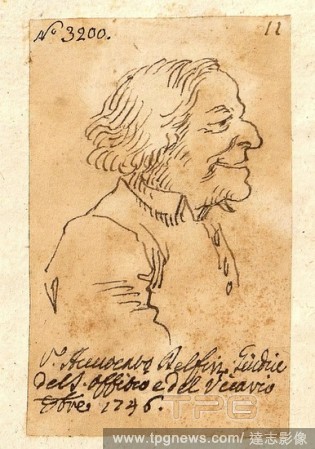 No 3200.
12
Sr. Avvocato Belfin Giudice
del S. Offitio e del Vicario
1746.
TPG
www.tpgnews.com/ 達志影像